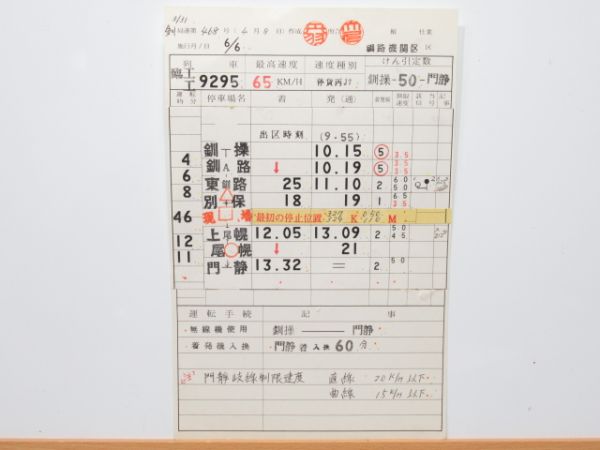 3/31
釧局運第468号(4月8日)作成
施行月日 6/6
釧路機関区
列車 最高速度 速度種別 けん引定数
臨工工 9295 65 KM/H 停貨丙J7 釧操-50-門静
運転時分 停車場名 着 発(通) 着発線 制限速度 記事
出区時刻 (9.55)
釧操 10.15 5 35
4 釧路 ↓ 10.19 5 35 35
6 東釧路 25 11.10 2 60 50
8 別保 18 19 1 65 35
46 現場 最初の停止位置 K M
12 上尾幌 12.05 13.09 2 50 45
11 尾幌 ↓ 21
門静 13.32 = 2 50
運転手続 記事
無線機使用 釧操 ── 門静
着発機入換 門静着入換60分
門静岐線制限速度 直線 20K/m以下
曲線 15K/m以下